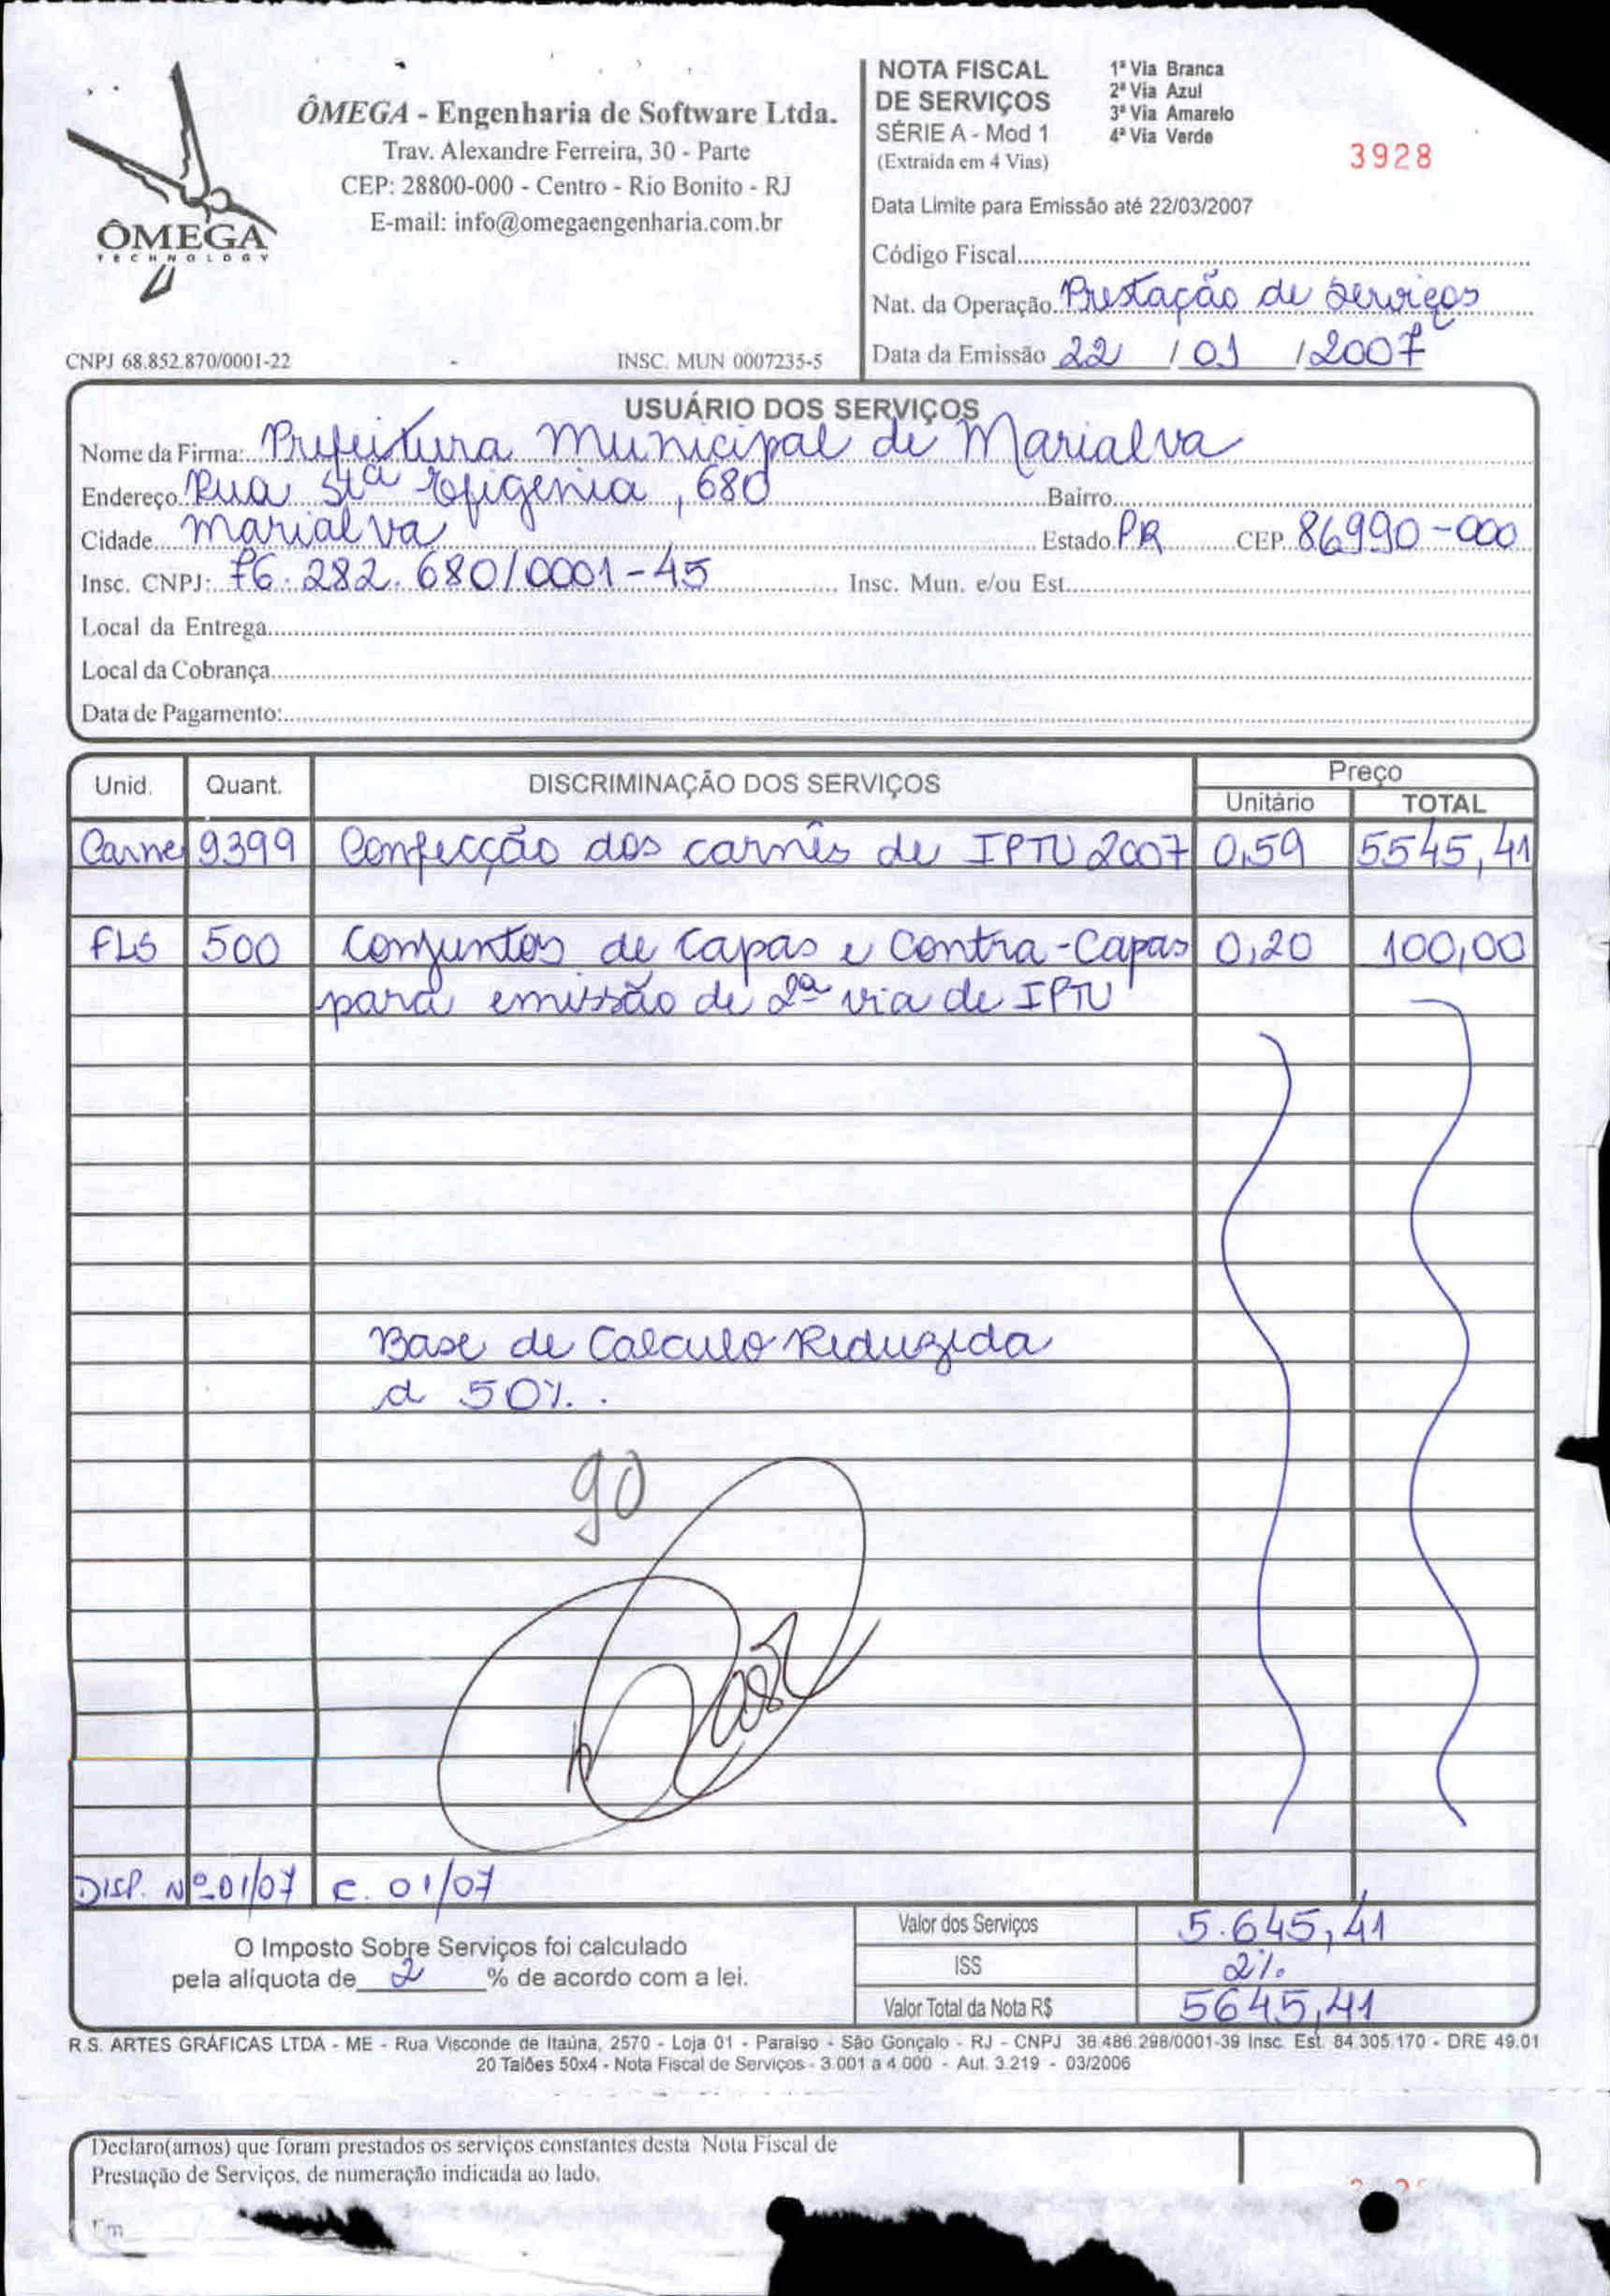 ÔMEGA
TECHNOLOGY
ÔMEGA - Engenharia de Software Ltda.
Trav. Alexandre Ferreira, 30 - Parte
CEP: 28800-000 - Centro - Rio Bonito - RJ
E-mail: info@omegaengenharia.com.br
CNPJ 68.852.870/0001-22 - INSC. MUN 0007235-5
NOTA FISCAL
DE SERVIÇOS
SÉRIE A - Mod 1
(Extraida em 4 Vias)
1ª Via Branca
2ª Via Azul
3ª Via Amarelo
4ª Via Verde
3928
Data Limite para Emissão até 22/03/2007
Código Fiscal
Nat. da Operação Prestação de Serviços
Data da Emissão 22 / 01 / 2007
USUÁRIO DOS SERVIÇOS
Nome da Firma: Prefeitura Municipal de Marialva
Endereço Rua Stª Efigenia, 680 Bairro
Cidade Marialva Estado PR CEP 86990-000
Insc. CNPJ: 76.282.680/0001-45 Insc. Mun. e/ou Est.
Local da Entrega
Local da Cobrança
Data de Pagamento:
Unid. Quant. DISCRIMINAÇÃO DOS SERVIÇOS Preço
Unitário TOTAL
Carne 9399 Confecção dos carnês de IPTU 2007 0,59 5545,41
FLS 500 Conjuntos de Capas e Contra-Capas 0,20 100,00
para emissão de 2ª via de IPTU
Base de Calculo Reduzida
a 50%.
90
DISP. Nº 01/07 C. 01/07
O Imposto Sobre Serviços foi calculado
pela alíquota de 2 % de acordo com a lei.
Valor dos Serviços 5.645,41
ISS 2%
Valor Total da Nota R$ 5645,41
R.S. ARTES GRÁFICAS LTDA - ME - Rua Visconde de Itaúna, 2570 - Loja 01 - Paraíso - São Gonçalo - RJ - CNPJ 36.486.298/0001-39 Insc. Est. 84.305.170 - DRE 49.01
20 Talões 50x4 - Nota Fiscal de Serviços - 3.001 a 4.000 - Aut. 3.219 - 03/2006
Declaro(amos) que foram prestados os serviços constantes desta Nota Fiscal de
Prestação de Serviços, de numeração indicada ao lado.
Em